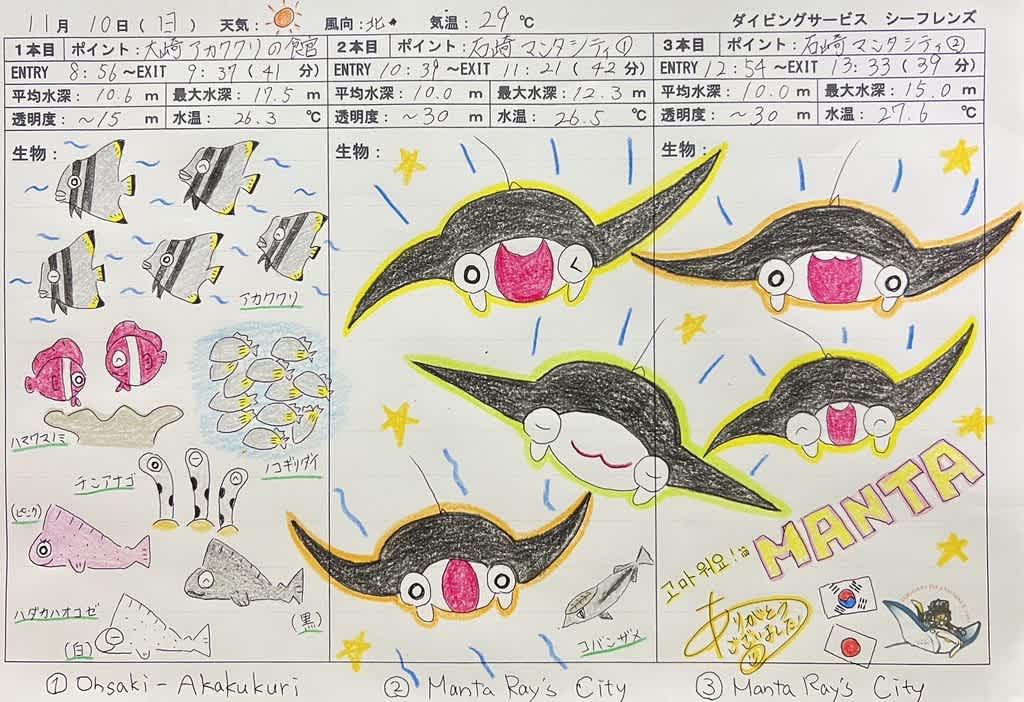 11月 10日(日) 天気: 風向:北 気温:29℃ ダイビングサービス シーフレンズ
1本目 ポイント:大崎アカククリの館宮
ENTRY 8:56~EXIT 9:37(41分)
平均水深:10.6m 最大水深:17.5m
透明度:~15m 水温:26.3℃
生物:
アカククリ
ハマクマノミ
ノコギリダイ
チンアナゴ
(ピンク)
ハダカハオコゼ
(黒)
(白)
① Ohsaki-Akakukuri
2本目 ポイント:石崎マンタシティ①
ENTRY 10:39~EXIT 11:21(42分)
平均水深:10.0m 最大水深:12.3m
透明度:~30m 水温:26.5℃
生物:
コバンザメ
② Manta Ray's City
3本目 ポイント:石崎マンタシティ②
ENTRY 12:54~EXIT 13:33(39分)
平均水深:10.0m 最大水深:15.0m
透明度:~30m 水温:27.6℃
生物:
MANTA
고마워요!
ありがとう
ございました!
③ Manta Ray's City